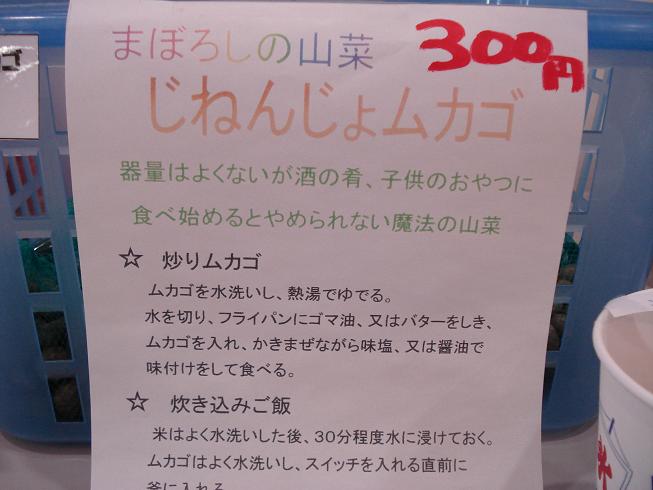 まぼろしの山菜
300円
じねんじょムカゴ
器量はよくないが酒の肴、子供のおやつに
食べ始めるとやめられない魔法の山菜
☆ 炒りムカゴ
ムカゴを水洗いし、熱湯でゆでる。
水を切り、フライパンにゴマ油、又はバターをしき、
ムカゴを入れ、かきまぜながら味塩、又は醤油で
味付けをして食べる。
☆ 炊き込みご飯
米はよく水洗いした後、30分程度水に浸けておく。
ムカゴはよく水洗いし、スイッチを入れる直前に
釜に入れる
ゴ